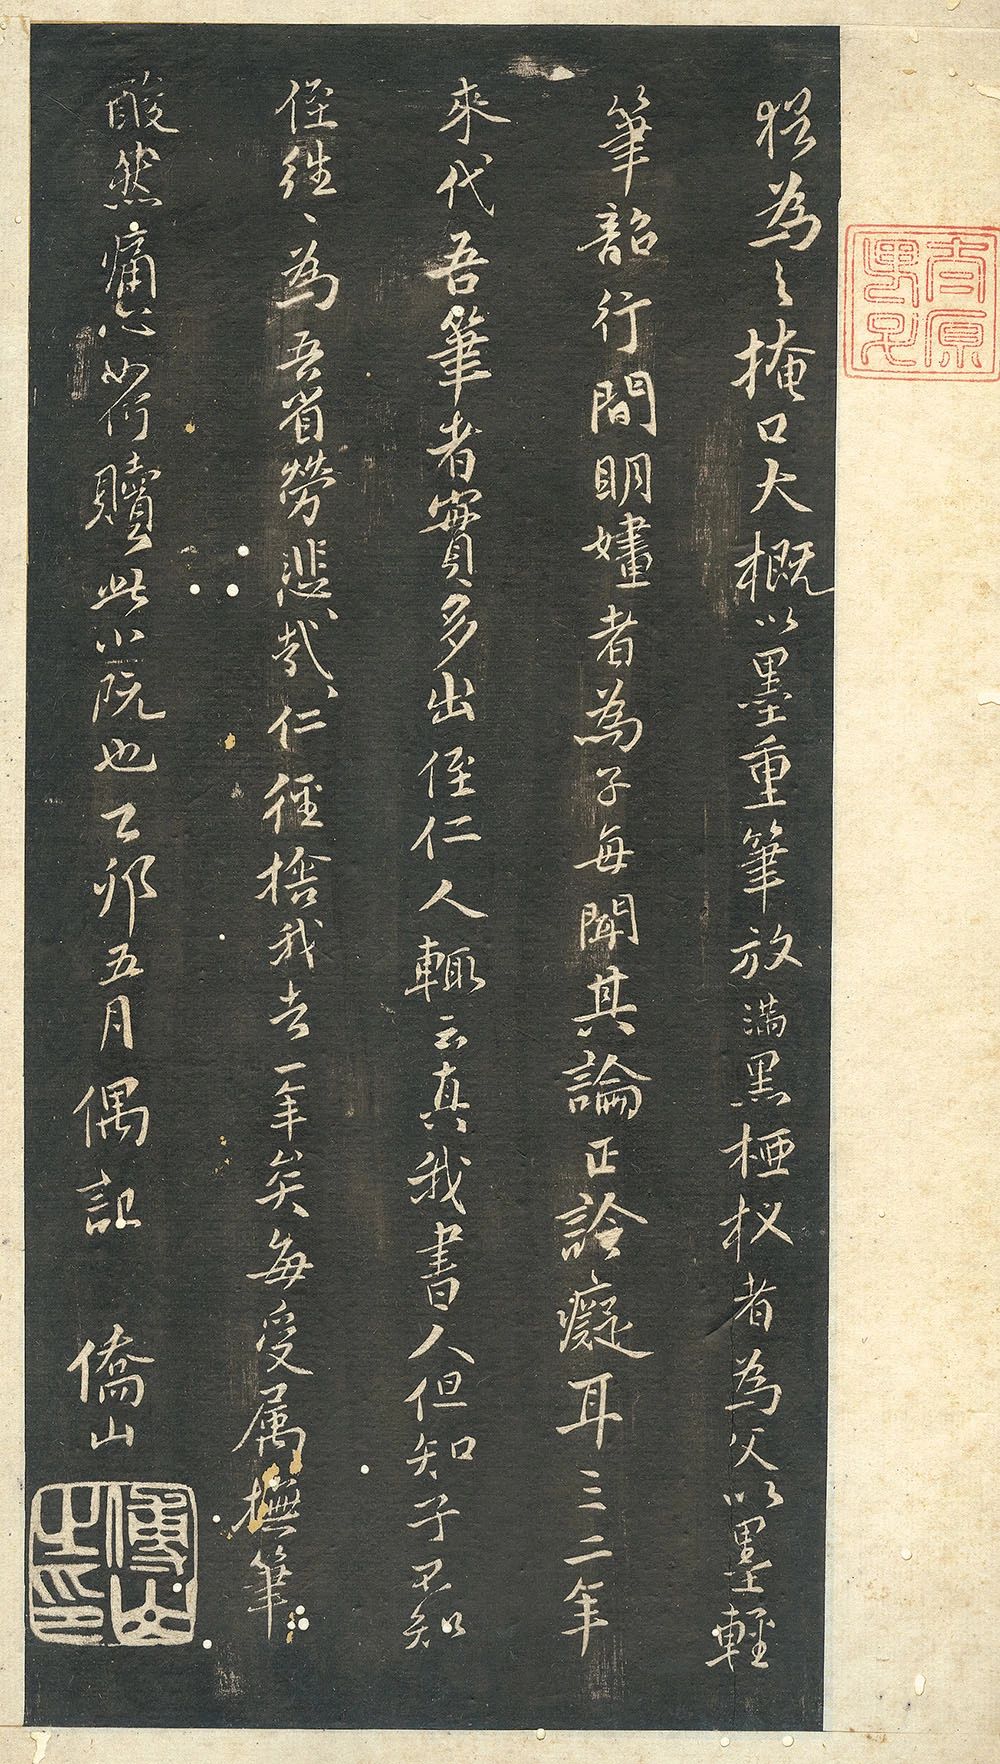 猶為之掩口大概以墨重筆放滿黑椏杈者為父以墨輕
筆韶行間明嫿者為子每聞其論正詅癡耳三二年
來代吾筆者實多出侄仁人輒云真我書人但知子不知
侄往〻為吾省勞悲哉仁徑捨我去一年矣每受属撫筆
酸然痛心如何贖此小阮也乙卯五月偶記 僑山
傅山之印
太原